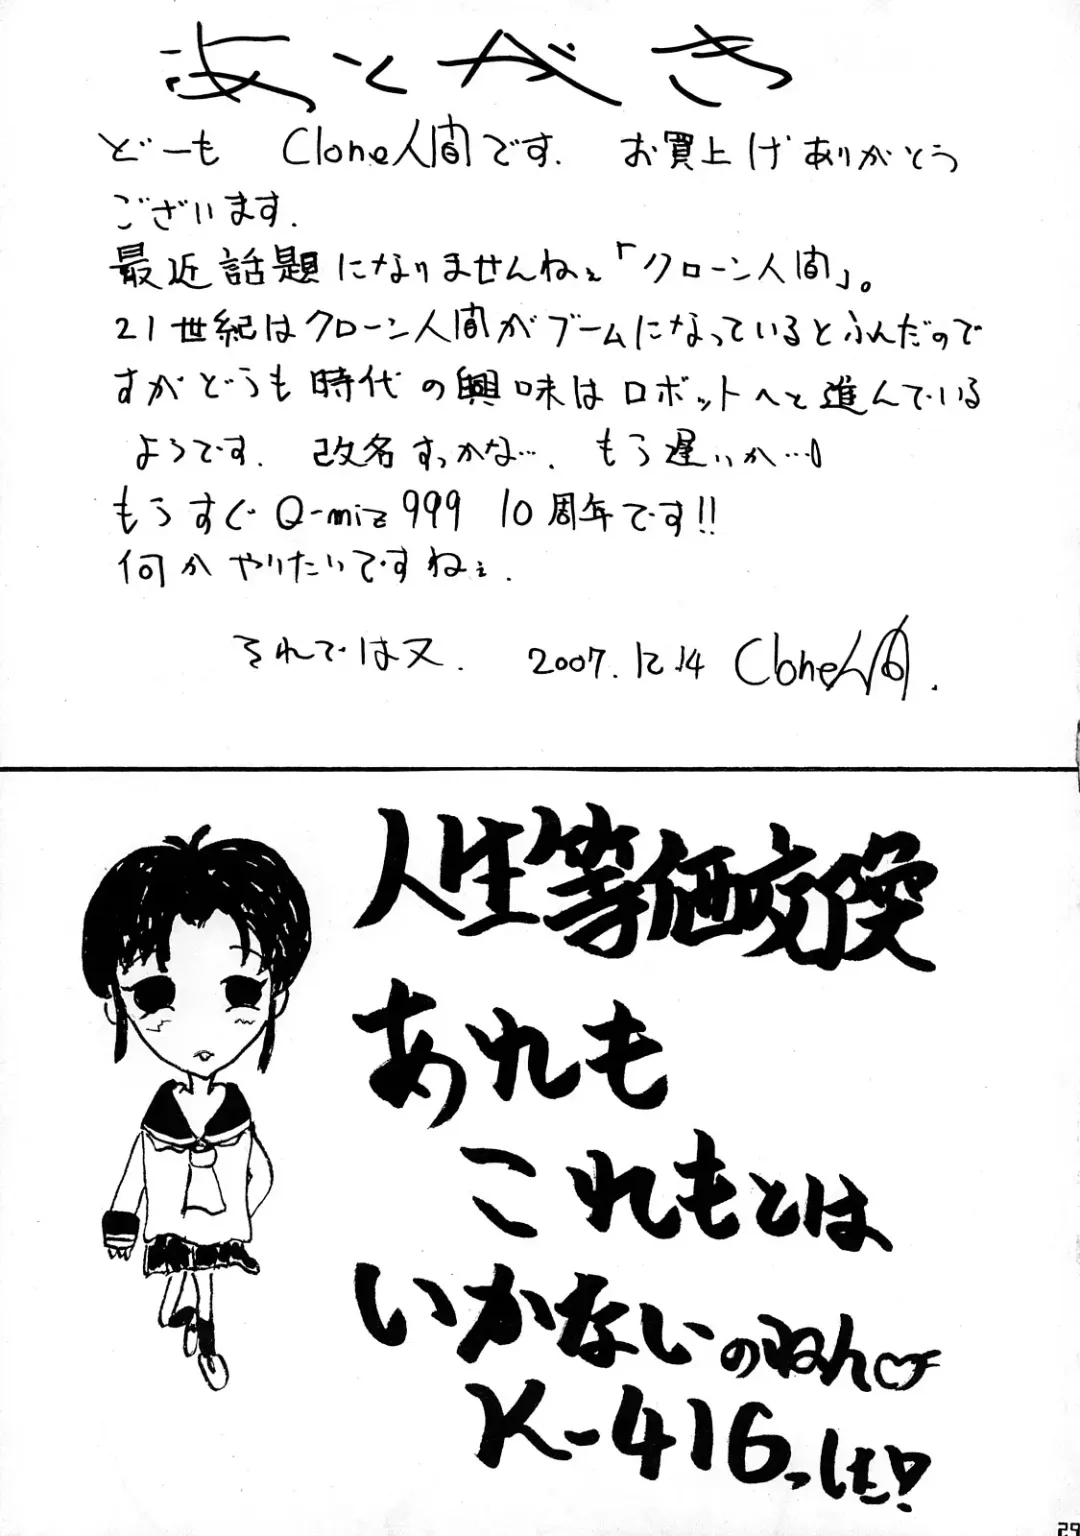 あとがき
どーも Clone人間です. お買上げありがとう
ございます.
最近話題になりませんねぇ「クローン人間」。
21世紀はクローン人間がブームになっているとふんだので
すがどうも時代の興味はロボットへと進んでいる
ようです. 改名すっかな…. もう遅いか…!
もうすぐ Q-miz999 10周年です!!
何かやりたいですねぇ.
それでは又. 2007.12.14 Clone人間.
人生等価交換
あれも
これもとは
いかないのねん♡
K-416っした!
29